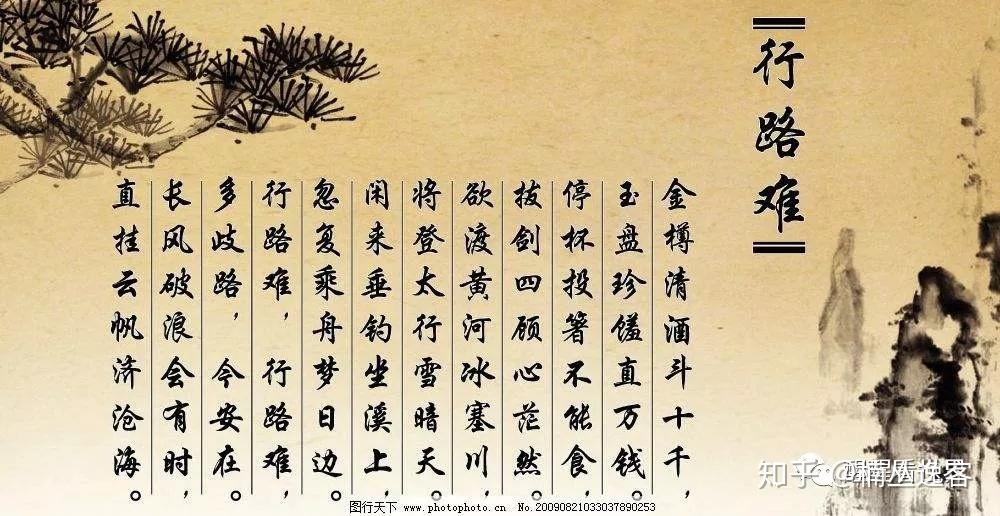 行路难
金樽清酒斗十千，
玉盘珍馐直万钱。
停杯投箸不能食，
拔剑四顾心茫然。
欲渡黄河冰塞川，
将登太行雪暗天。
闲来垂钓坐溪上，
忽复乘舟梦日边。
行路难，行路难，
多歧路，今安在。
长风破浪会有时，
直挂云帆济沧海。
知乎
图行天下 www.photophoto.cn No.20090821033037890253